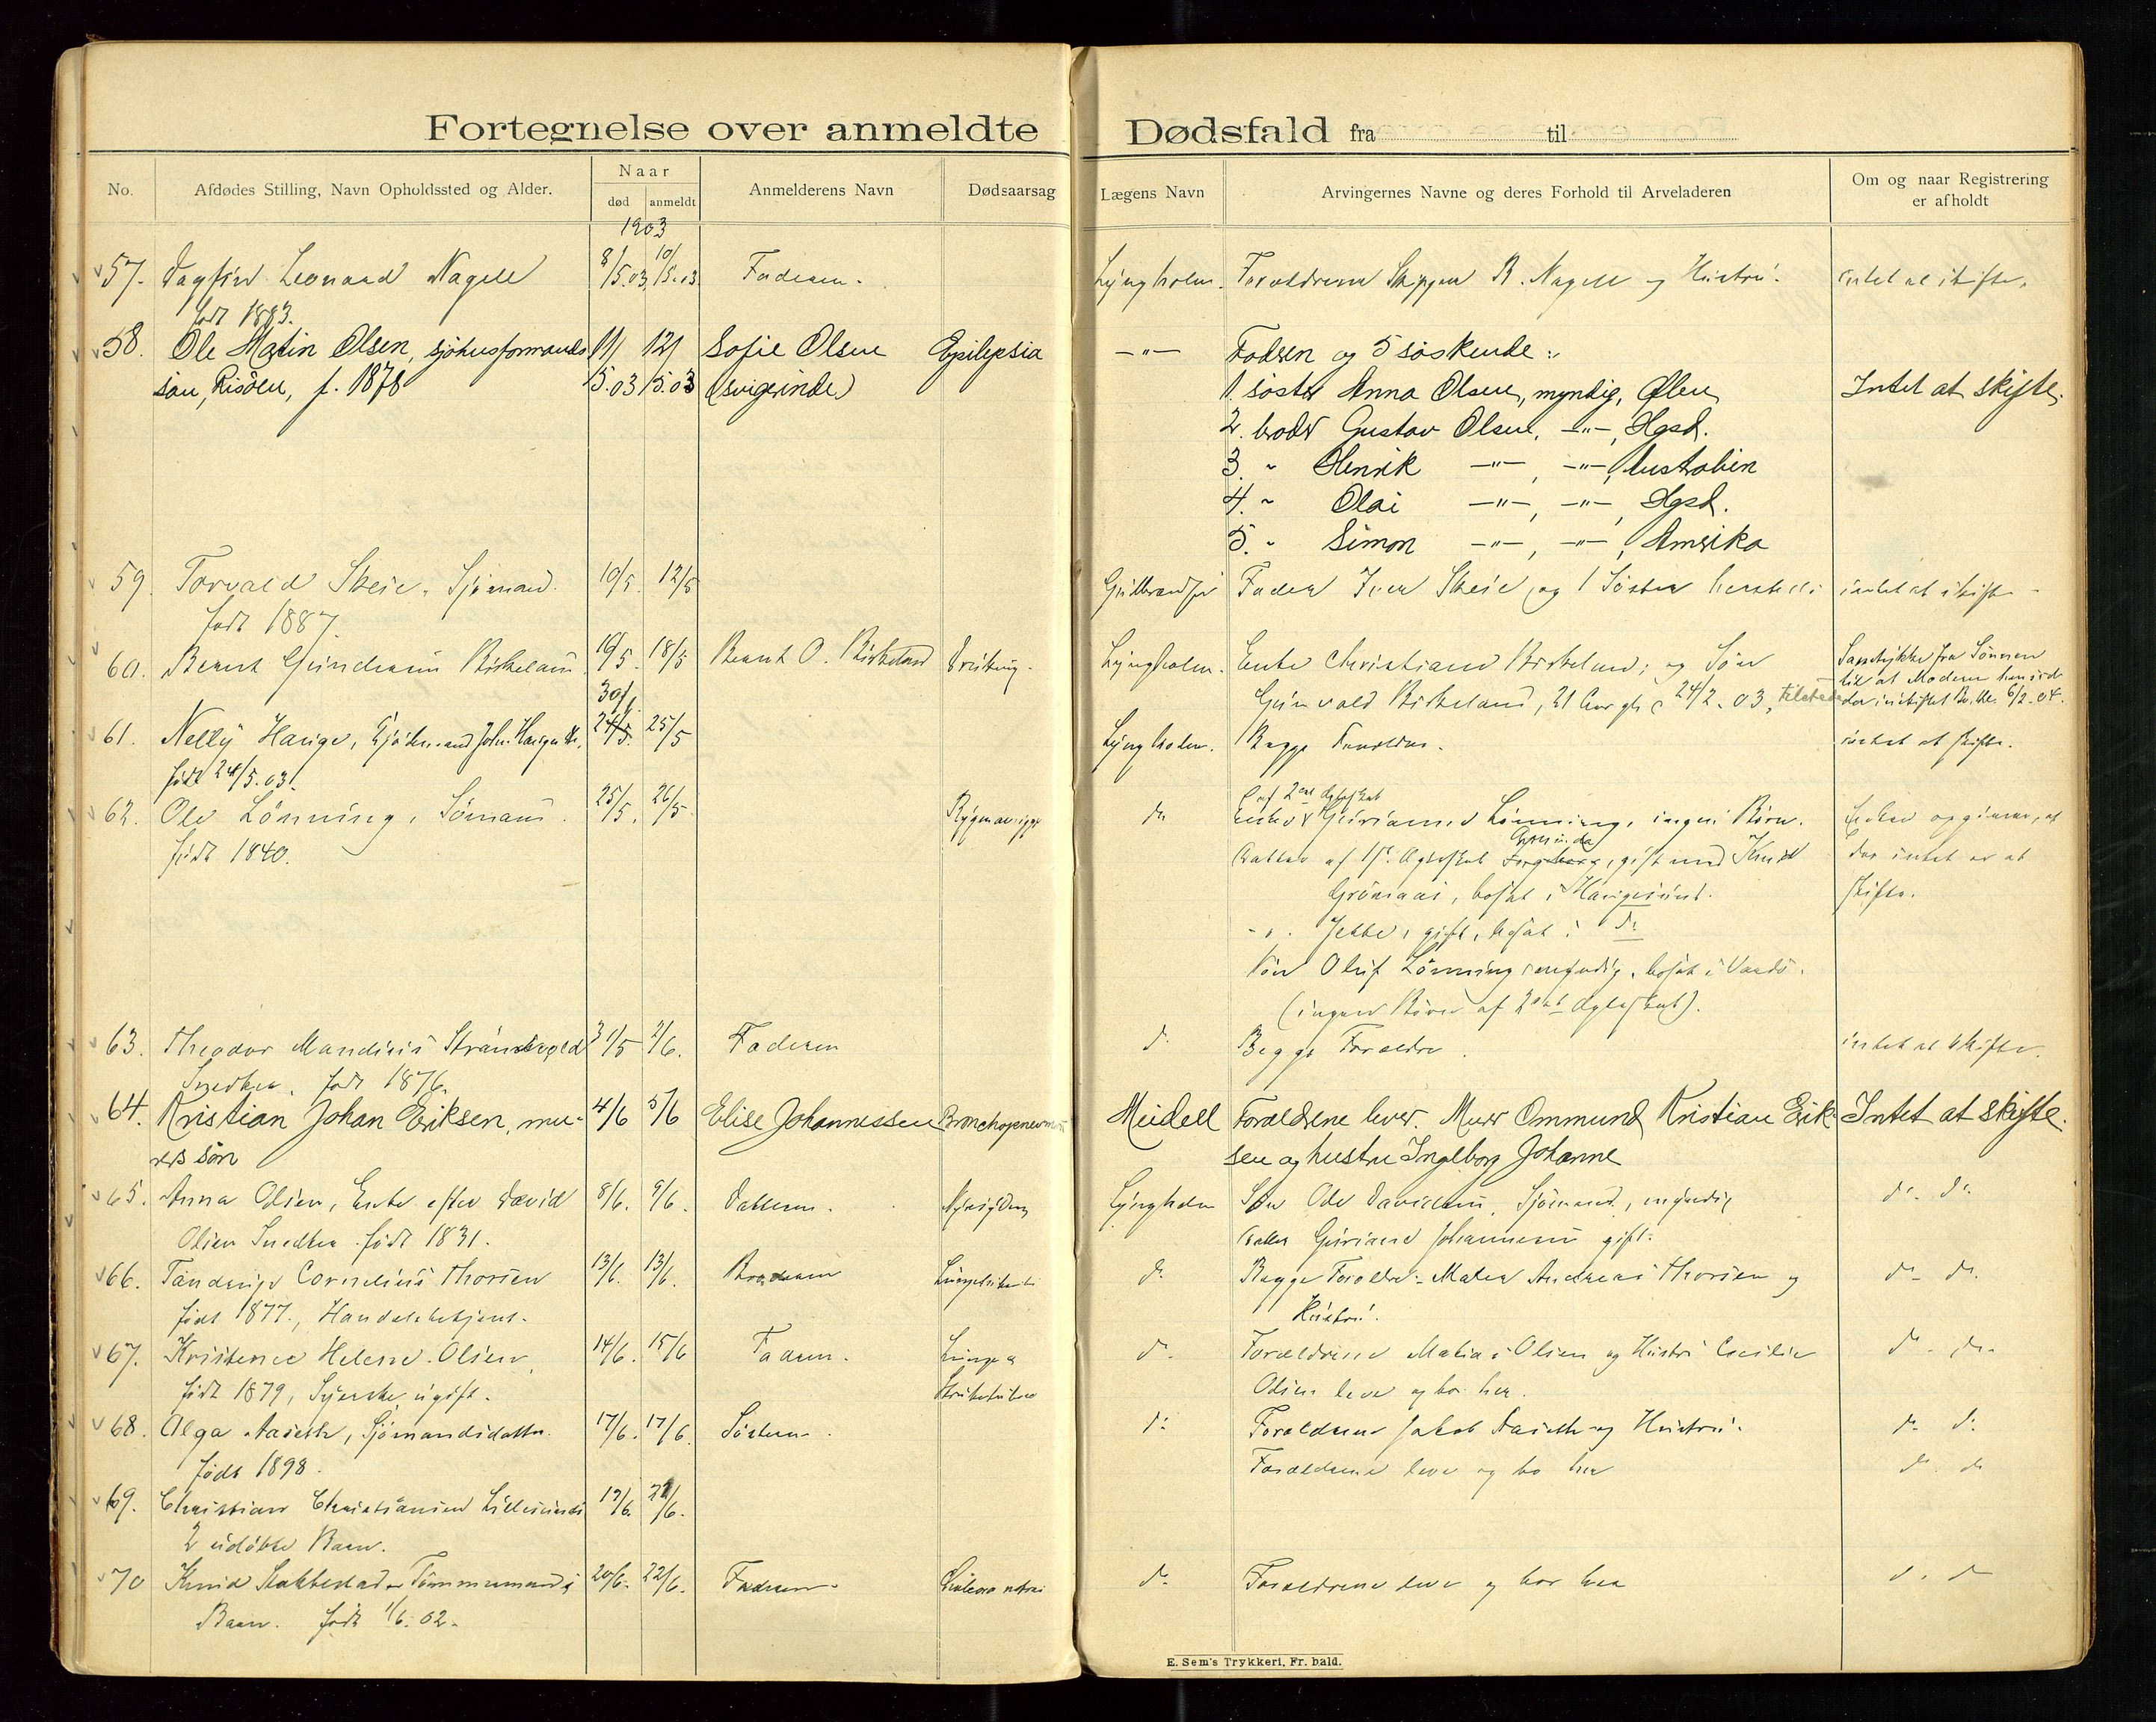 Fortegnelse over anmeldte Dødsfald fra til
No.
Afdødes Stilling, Navn Opholdssted og Alder.
Naar
død
anmeldt
Anmelderens Navn
Dødsaarsag
Lægens Navn
Arvingernes Navne og deres Forhold til Arveladeren
Om og naar Registrering
er afholdt
1903
57. Dagfin Leonard Nagell 8/5.03 10/5.03 Faderen. Lyngholm. Forældrene Skipper R. Nagell og Hustru. intet at skifte.
født 1883.
58. Ole Matin Olsen, sjøhusformands 11/5.03 12/5.03 Sofie Olsen Epilepsia —"— Faderen og 5 søskende:
søn, Risøen, f. 1878 (svigerinde)
1. søster Anna Olsen, myndig, Ølen Intet at skifte.
2. broder Gustav Olsen, —"—, Hgsd.
3. " Henrik —"—, —"—, Australien
4. " Olai —"—, —"—, Hgsd.
5. " Simon —"—, —"—, Amerika
59. Torvald Skeie, Sjømand. 10/5. 12/5 Fader Iver Skeie og 1 Søster intet at skifte
født 1887.
60. Bernt Birkeland 16/5. 18/5 Bernt O. Birkeland Lyngholm. Enke Christiane Birkeland, og Søn Samtykke fra Sønnen
til at Moderen
Birkeland, 21 Aar gl. 24/2.03, 6/2.04.
30/5
61. Nelly Hauge, 24/5. 25/5 Lyngholm. Begge Forældre. intet at skifte.
født 24/5.03.
62. Ole Lønning, Sømand. 25/5. 26/5. do
født 1840.
Lønning, ingen Børn. Enken opgiver, at
Datter af 1ste Ægteskab, gift med Knud der intet er at
bosat i Haugesund. skifte.
gift, bosat i do
Søn Oluf Lønning myndig, bosat i
(ingen Børn af 2det Ægteskab).
63. Theodor Mandius 31/5 2/6. Faderen do Begge Forældre. intet at skifte.
Snedker. født 1876.
64. Kristian Johan Eriksen, mu- 4/6 5/6 Elise Johannessen Meidell Forældrene lever. Murer Ommund Kristian Erik- Intet at skifte.
rers søn
sen og hustru Ingeborg Johanne
65. Anna Olsen, Enke efter David 8/6. 9/6. Datteren. Lyngholm Søn Ole Davidsen, Sjømand, myndig do. do.
Olsen Snedker. født 1831.
Datter Johannesen gift.
66. Cornelius Thorsen 13/6. 13/6. Broderen do Begge Forældre: Maler Andreas Thorsen og do. do.
født 1877, Handelsbetjent.
Hustru.
67. Kristence Helene Olsen, 14/6. 15/6 Faderen. do Forældrene Mathias Olsen og Hustru Cecilie do. do.
født 1879, Syerske, ugift.
Olsen lever og bor her.
68. Olga Aaseth, Sjømandsdatter. 17/6. 17/6. Søsteren. do Forældrene Jakob Aaseth og Hustru. do. do.
født 1898.
Forældrene lever og bor her do. do
69. Christian Christiansen 19/6. 22/6.
2 udøbte Barn.
70 Knud Stakkestad Tømmermands 20/6. 22/6. Faderen. do Forældrene lever og bor her do. do
Barn. født 1/6.02.
E. Sem's Trykkeri, Fr. hald.